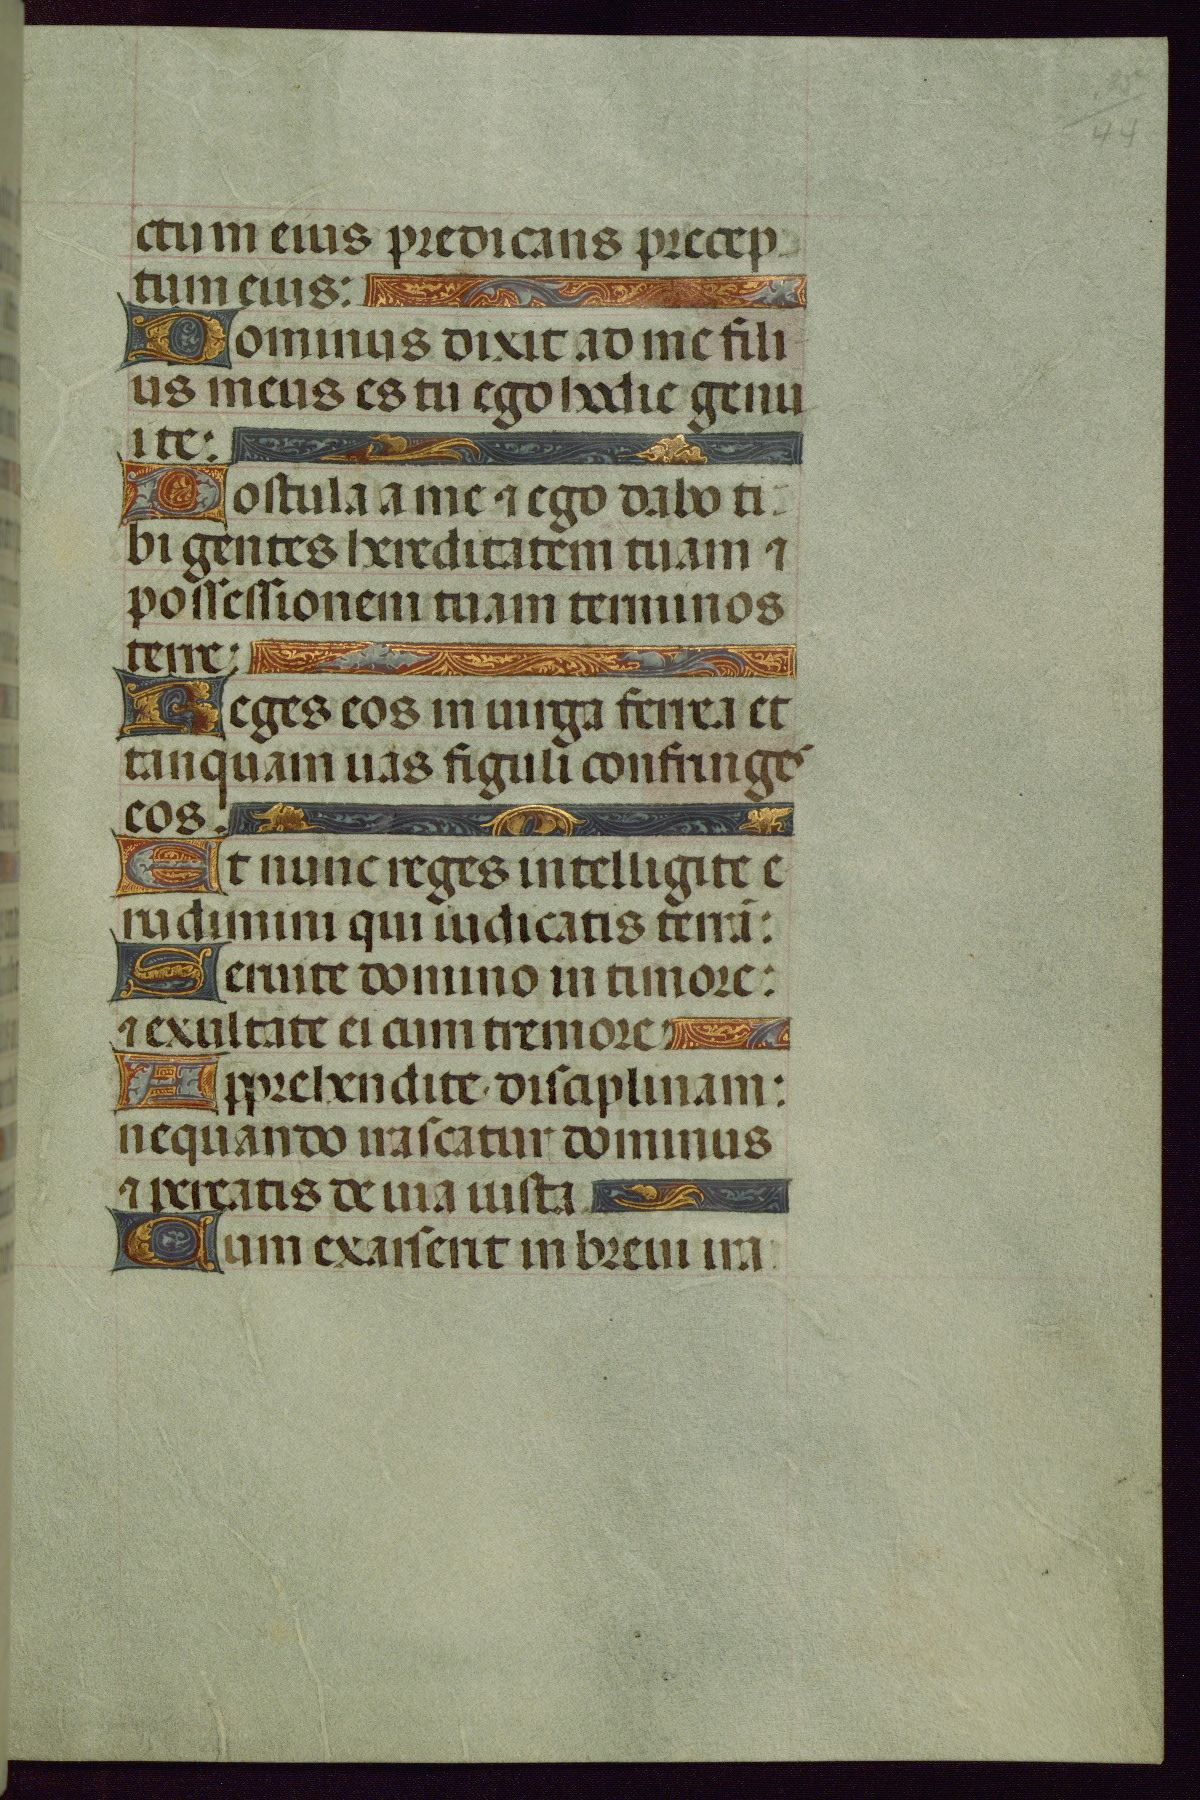 25
44
ctum eius predicans precep
tum eius:
Dominus dixit ad me fili
us meus es tu ego hodie genu
i te:
Postula a me ⁊ ego dabo ti
bi gentes hereditatem tuam ⁊
possessionem tuam terminos
terre:
Reges eos in uirga ferrea et
tanquam uas figuli confringes
eos:
Et nunc reges intelligite e
rudimini qui iudicatis terrā:
Seruite domino in timore:
⁊ exultate ei cum tremore:
Apprehendite disciplinam:
nequando irascatur dominus
⁊ pereatis de uia iusta
Cum exarserit in breui ira